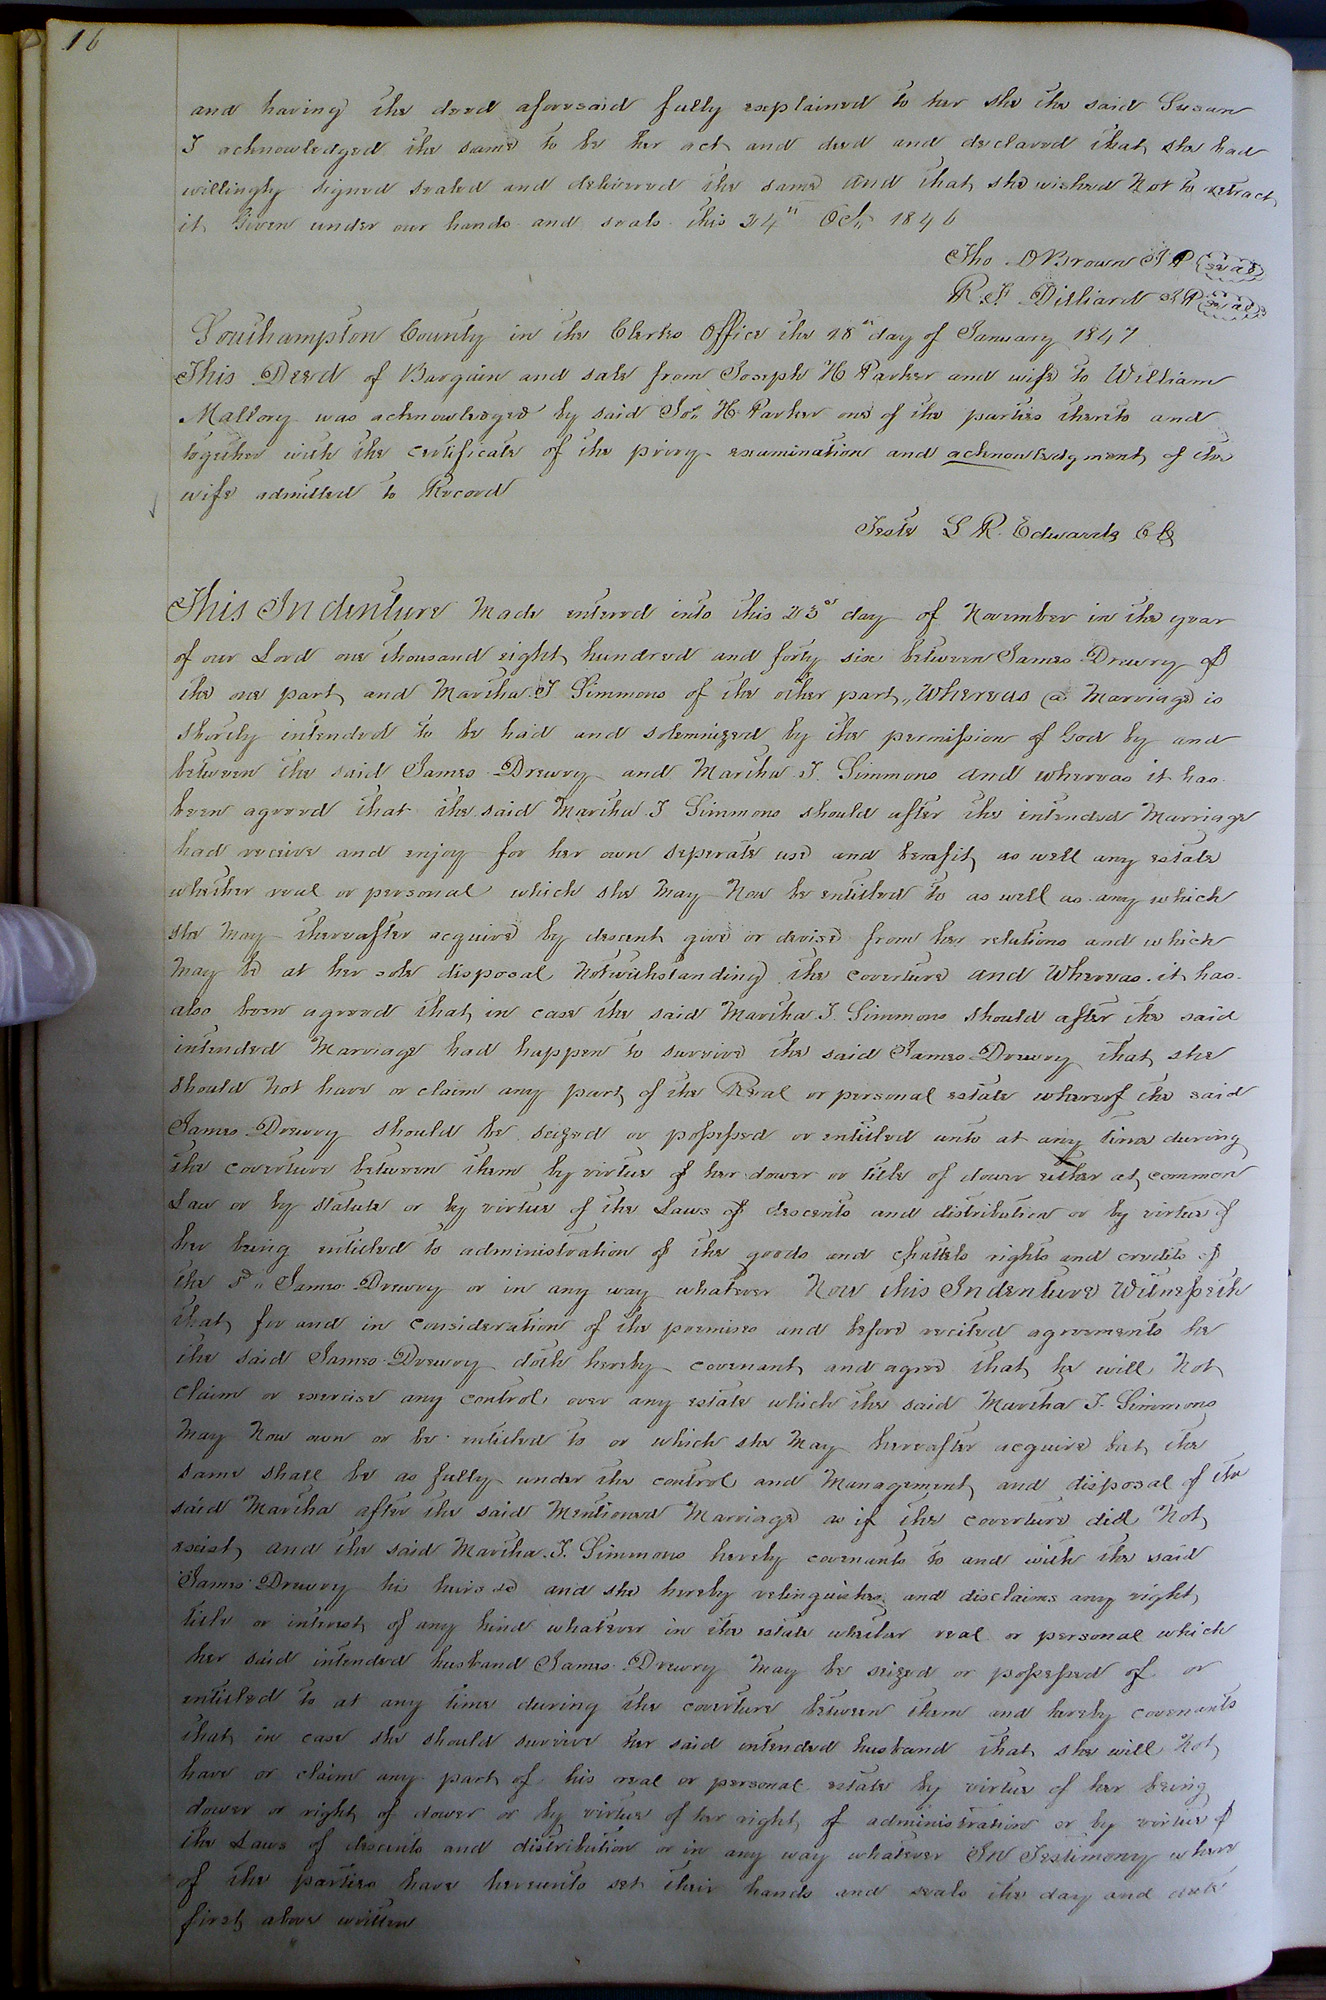 16
and having the deed aforesaid fully explained to her she the said Susan
J acknowledged the same to be her act and deed and declared that she had
willingly signed sealed and delivered the same and that she wished not to retract
it Given under our hands and seals this 24th Oct 1846
Tho D Brown JP seal
R. J. Dilliard JP seal
Southampton County in the Clerks Office the 18th day of January 1847
This Deed of Bargain and sale from Joseph H Parker and wife to William
Mallory was acknowledged by said Jos. H Parker one of the parties thereto and
together with the certificate of the privy examination and acknowledgment of the
wife admitted to Record
Teste L R. Edwards Clk
This Indenture Made entered into this 23d day of November in the year
of our Lord one thousand eight hundred and forty six between James Drewry of
the one part and Martha J Simmons of the other part, Whereas a Marriage is
shortly intended to be had and solemnized by the permission of God by and
between the said James Drewry and Martha J. Simmons and whereas it has
been agreed that the said Martha J Simmons should after the intended Marriage
had receive and enjoy for her own seperate use and benefit as well any estate
whether real or personal which she May Now be entitled to as well as any which
she May thereafter acquire by descent give or devise from her relations and which
May be at her sole disposal Notwithstanding the coverture and Whereas it has
also been agreed that in case the said Martha J. Simmons should after the said
intended Marriage had happen to survive the said James Drewry that she
should Not have or claim any part of the Real or personal estate whereof the said
James Drewry should be seized or possessed or entitled unto at any time during
the coverture between them by virtue of her dower or title of dower either at common
Law or by statute or by virtue of the Laws of descents and distribution or by virtue of
her being entitled to administration of the goods and chattels rights and credits of
the sd James Drewry or in any way whatever Now this Indenture Witnesseth
that for and in consideration of the premises and before recited agreements he
the said James Drewry doth hereby covenant and agree that he will Not
claim or exercise any control over any estate which the said Martha J. Simmons
May Now own or be entitled to or which she May hereafter acquire but the
same shall be as fully under the control and Management and disposal of the
said Martha after the said Mentioned Marriage as if the coverture did Not
exist and the said Martha J. Simmons hereby covenants to and with the said
James Drewry his heirs &c and she hereby relinquishes and disclaims any right
title or interest of any kind whatever in the estate whether real or personal which
her said intended husband James Drewry May be seized or possessed of or
entitled to at any time during the coverture between them and hereby covenants
that in case she should survive her said intended husband that she will Not
have or claim any part of his real or personal estate by virtue of her being
dower or right of dower or by virtue of her right of administration or by virtue of
the Laws of descents and distribution or in any way whatever In Testimony where
of the parties have hereunto set their hands and seals the day and date
first above written